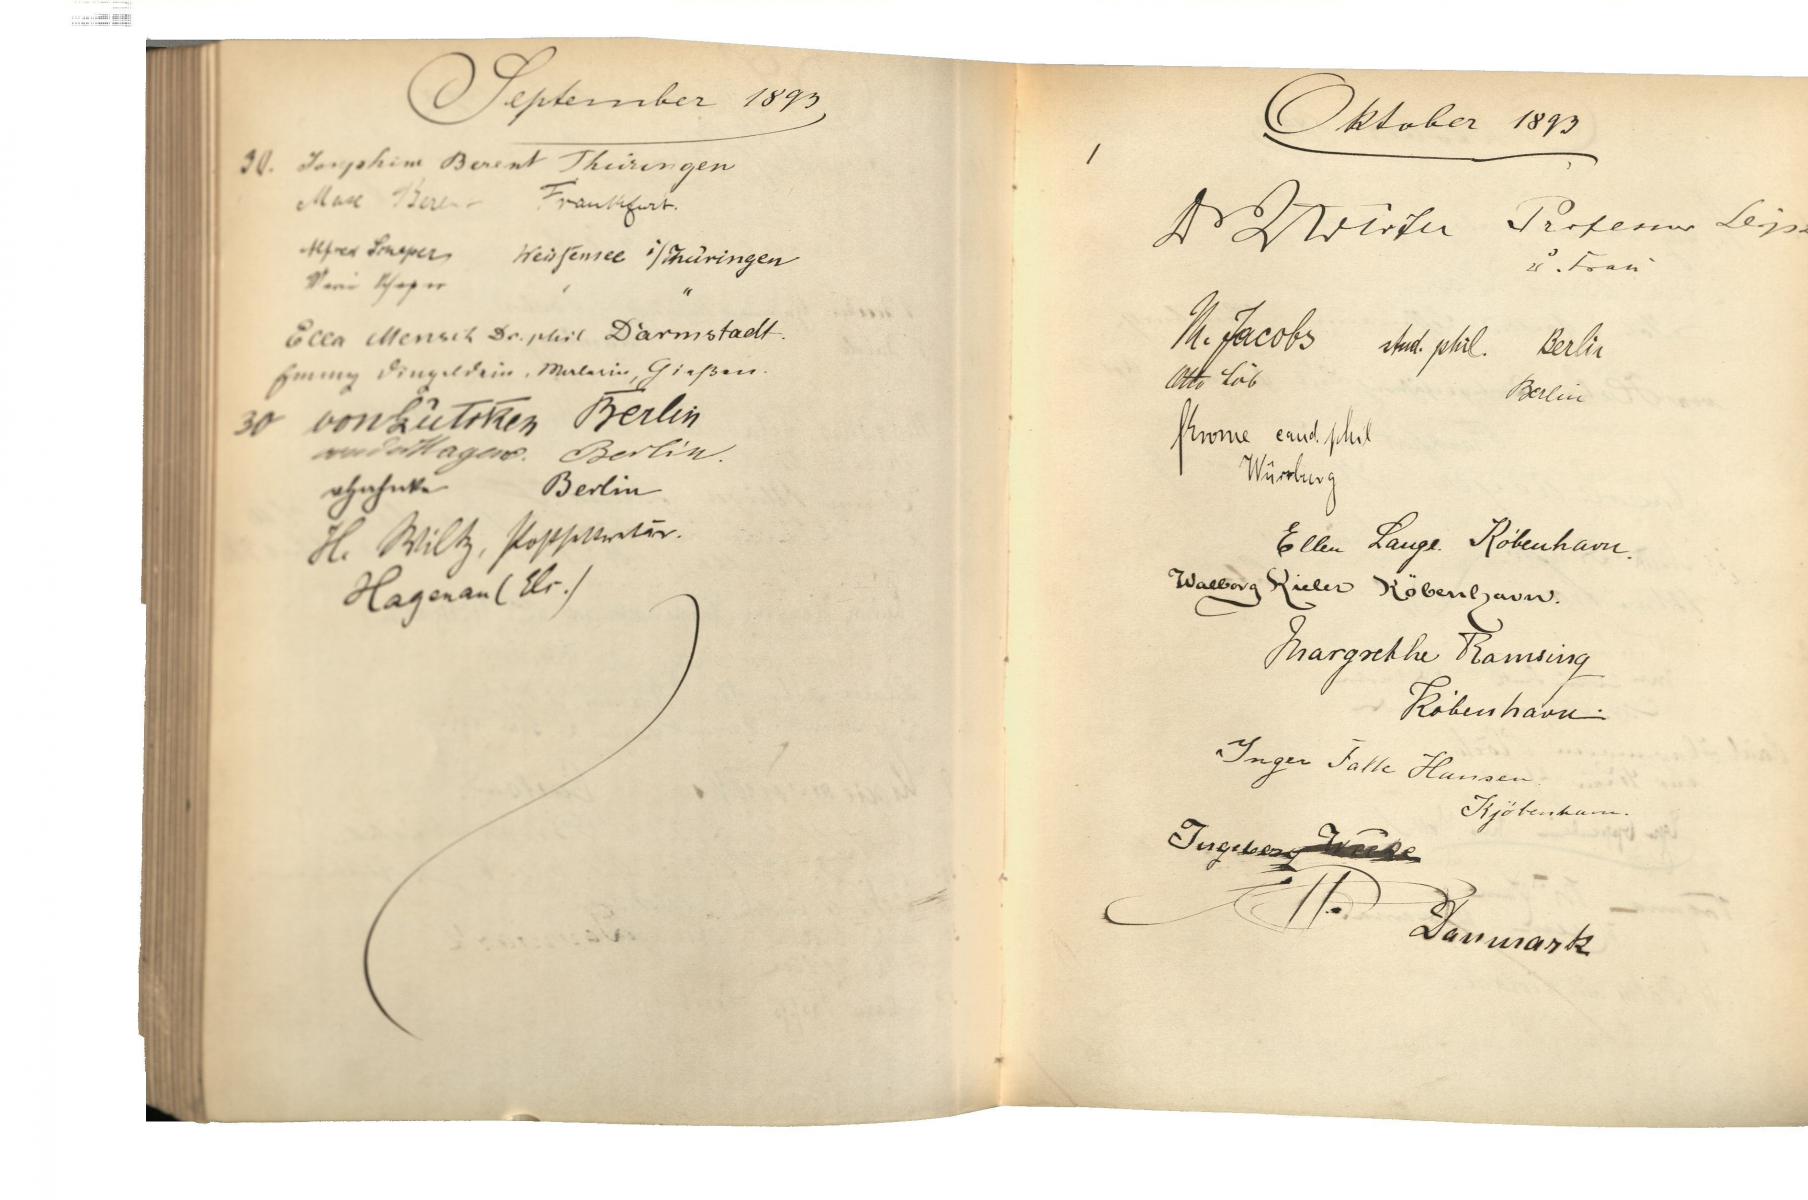 September 1893
30. Josephine Berent Thüringen
Max Frankfurt.
Alfred Weißensee i/Thüringen
"
Ella Mensch Dr. phil Darmstadt.
Emmy Dingeldein, Malerin, Gießen.
30 von Lütcken Berlin
von der Hagen. Berlin.
Berlin
H. Wiltz, Postsekretär.
Hagenau (Els.)
Oktober 1893
1
Dr Professor
u. Frau
M. Jacobs stud. phil. Berlin
Otto Löb Berlin
Krome cand. phil
Würzburg
Ellen Lange. København.
Walborg Kieler København.
Margrethe Ramsing
København.
Inger Falk Hansen
Kjöbenhavn.
Ingeborg
Danmark